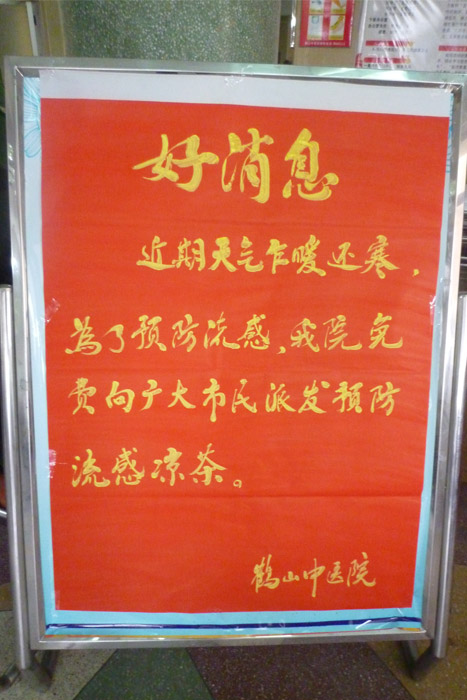 好消息
近期天气乍暖还寒，
為了预防流感，我院免
费向广大市民派发预防
流感凉茶。
鹤山中医院